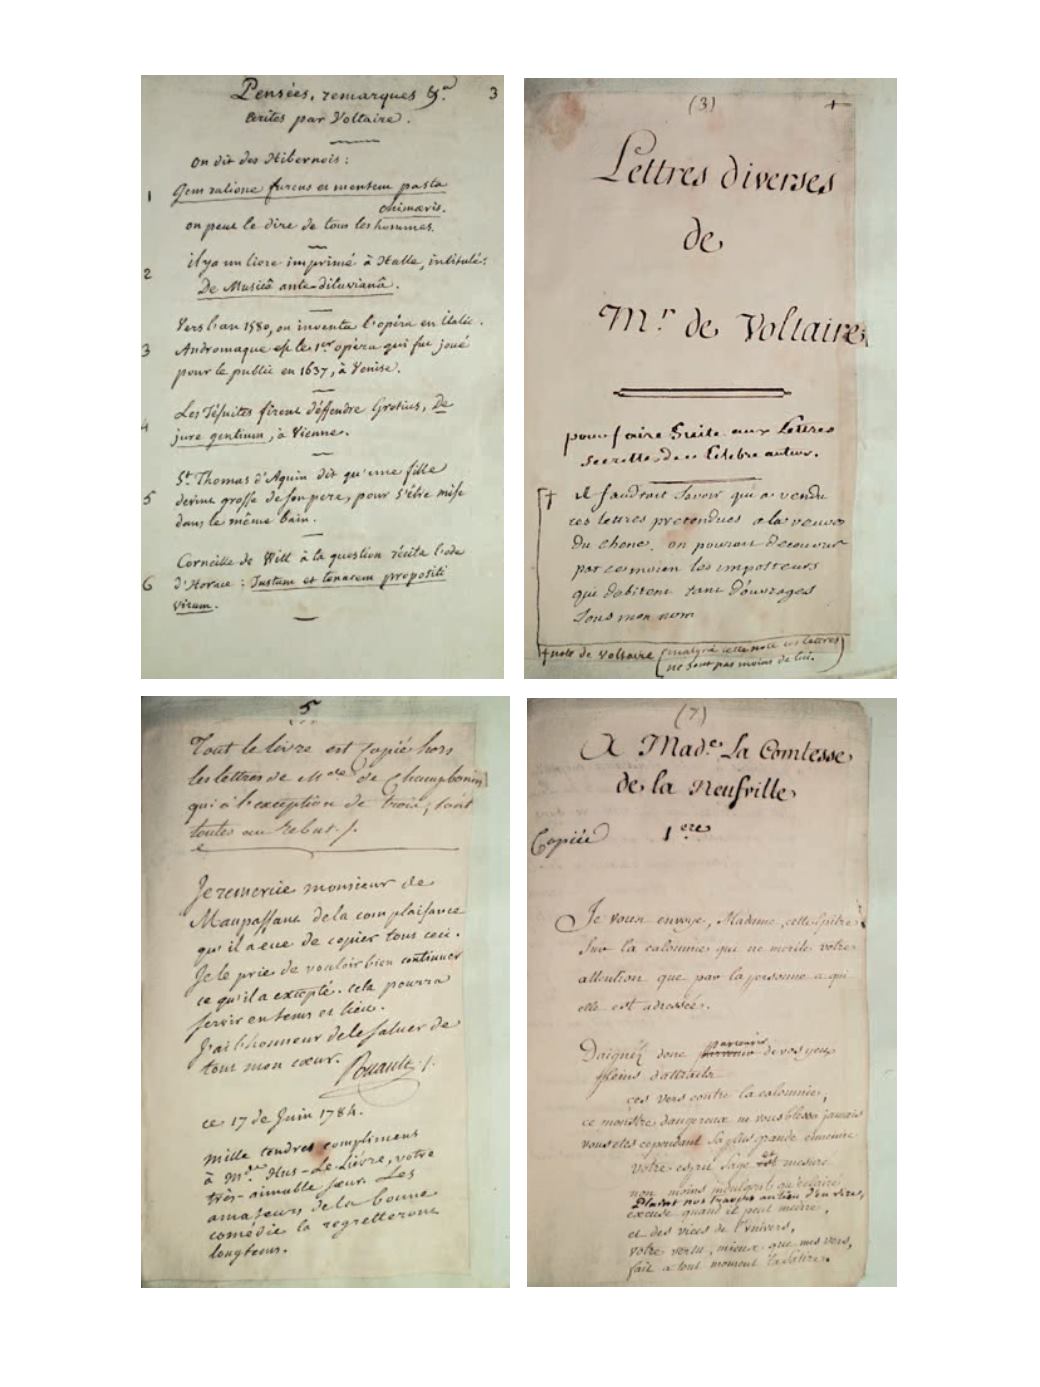 3
Pensées, remarques &.a
écrites par Voltaire.
On dit des Hibernois :
1
Gens ratione furens et mentem pasta
chimæris.
on peut le dire de tous les hommes.
2
il y a un livre imprimé à Halle, intitulé:
De Musicâ ante-diluvianâ.
3
Vers l'an 1580, on inventa l'opéra en italie.
Andromaque est le 1er opéra qui fut joué
pour le public en 1637, à Venise.
4
Les Jésuites firent déffendre Grotius, De
jure gentium, à Vienne.
5
St. Thomas d'Aquin dit qu'une fille
devint grosse de son pere, pour s'être mise
dans le même bain.
6
Corneille de Witt à la question récita l'ode
d'Horace : Justum et tenacem propositi
virum.
(3)
+
Lettres diverses
de
Mr. de Voltaire
pour faire Suite aux Lettres
Secrettes de ce Célebre auteur.
† il faudroit Savoir qui a vendu
ces lettres pretendues a la veuve
du chene. on pouroit decouvrir
par ce moien les imposteurs
qui debitent tant d'ouvrages
sous mon nom
† note de Voltaire (malgré cette note ces lettres
ne sont pas moins de lui.)
5
Tout le livre est copié hors
les lettres de Made. de Champbonin
qui à l'exception de trois, sont
toutes au rebut./.
Je remercie monsieur de
Maupassant de la complaisance
qu'il a eue de copier tout ceci.
Je le prie de vouloir bien continuer
ce qu'il a excepté. cela pourra
servir en tems et lieu.
J'ai l'honneur de le saluer de
tout mon cœur. Ruault ./.
ce 17 de Juin 1784.
Mille tendres complimens
à Mde. Hus-Le Liévre, votre
très-aimable sœur. Les
amateurs de la bonne
comédie la regretteront
longtems.
(7)
A Made. La Comtesse
de la Neufville
Copiée 1ere
Je vous envoye, Madame, cette Epitre
Sur la calomnie qui ne merite votre
attention que par la personne a qui
elle est adressée.
parcourir
Daignéz donc de vos yeux
pleins d'attraits
ces vers contre la calomnie;
ce monstre dangereux ne vous blessa jamais
vous etes cependant sa plus grande ennemie
et
votre esprit sage mesuré
non moins indulgent qu'éclairé
Plaint nos travers au lieu d'en rire,
excuse quand il peut médire,
et des vices de l'univers,
votre vertu, mieux que mes vers,
fait a tout moment la satire.